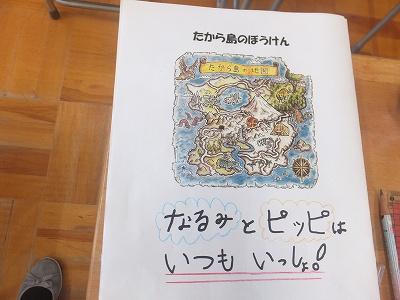 たから島のぼうけん
たから島の地図
なるみとピッピは
いつもいっしょ!